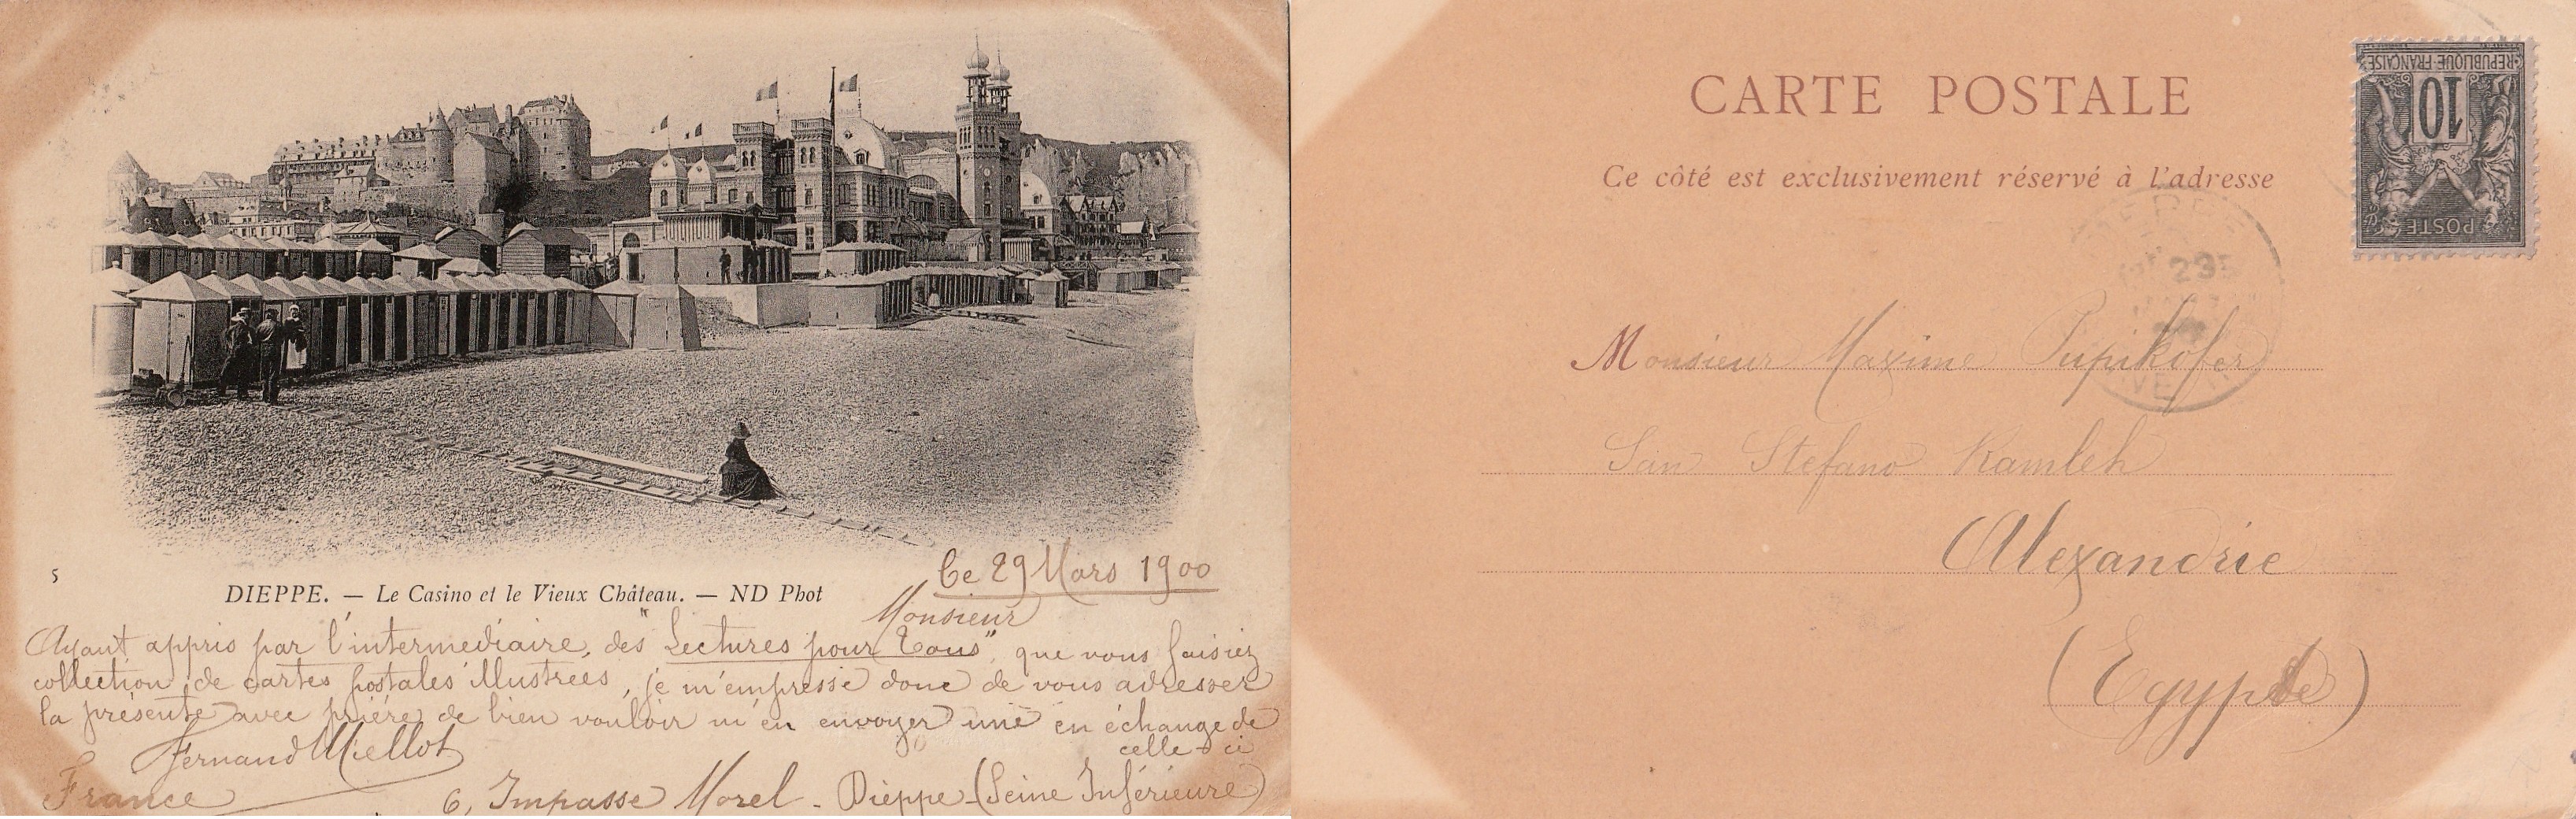 5
DIEPPE. — Le Casino et le Vieux Château. — ND Phot
Ce 29 Mars 1900
Monsieur
Ayant appris par l'intermediaire, des "Lectures pour Tous", que vous faisiez
collection de cartes postales illustrees, je m'empresse donc de vous adresser
la présente avec prière de bien vouloir m'en envoyer une en échange de
celle-ci
Fernand Miellot
France
6, Impasse Morel - Dieppe - (Seine Inférieure)
CARTE POSTALE
Ce côté est exclusivement réservé à l'adresse
REPUBLIQUE FRANÇAISE
10
POSTE
23
Monsieur Maxime Pupikofer
San Stefano Ramleh
Alexandrie
(Egypte)